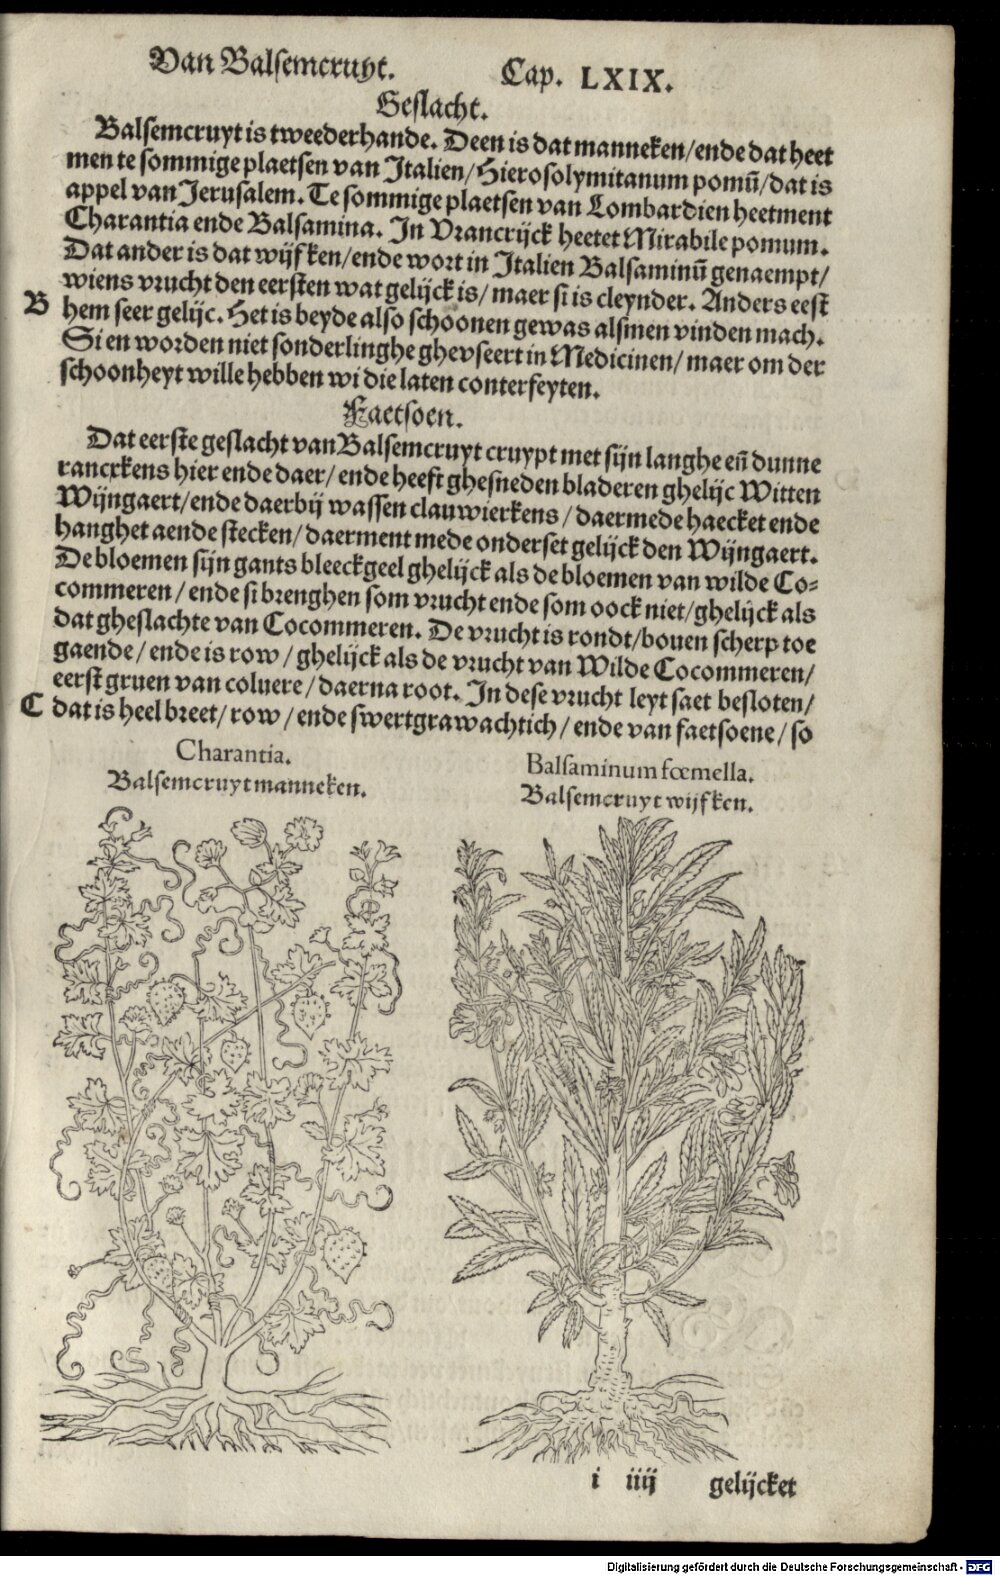 Van Balsemcruyt. Cap. LXIX.
Geslacht.
Balsemcruyt is tweederhande. Deen is dat manneken/ende dat heet
men te sommige plaetsen van Italien/Hierosolymitanum pomū/dat is
appel van Jerusalem. Te sommige plaetsen van Lombardien heetment
Charantia ende Balsamina. In Vrancrijck heetet Mirabile pomum.
Dat ander is dat wijfken/ende wort in Italien Balsaminū genaempt/
wiens vrucht den eersten wat gelijck is/maer si is cleynder. Anders eest
B hem seer gelijc. Het is beyde also schoonen gewas alsmen vinden mach.
Si en worden niet sonderlinghe ghevseert in Medicinen/maer om der
schoonheyt wille hebben wi die laten conterfeyten.
Faetsoen.
Dat eerste geslacht van Balsemcruyt cruypt met sijn langhe en̄ dunne
rancxkens hier ende daer/ende heeft ghesneden bladeren ghelijc Witten
Wijngaert/ende daerbij wassen clauwierkens/daermede haecket ende
hanghet aende stecken/daerment mede onderset gelijck den Wijngaert.
De bloemen sijn gants bleeckgeel ghelijck als de bloemen van wilde Co=
commeren/ende si brenghen som vrucht ende som oock niet/ghelijck als
dat gheslachte van Cocommeren. De vrucht is rondt/bouen scherp toe
gaende/ende is row/ghelijck als de vrucht van Wilde Cocommeren/
eerst gruen van coluere/daerna root. In dese vrucht leyt saet besloten/
C dat is heel breet/row/ende swertgrawachtich/ende van faetsoene/so
Charantia.
Balsemcruyt manneken.
Balsaminum fœmella.
Balsemcruyt wijfken.
i iiij gelijcket
Digitalisierung gefördert durch die Deutsche Forschungsgemeinschaft - DFG